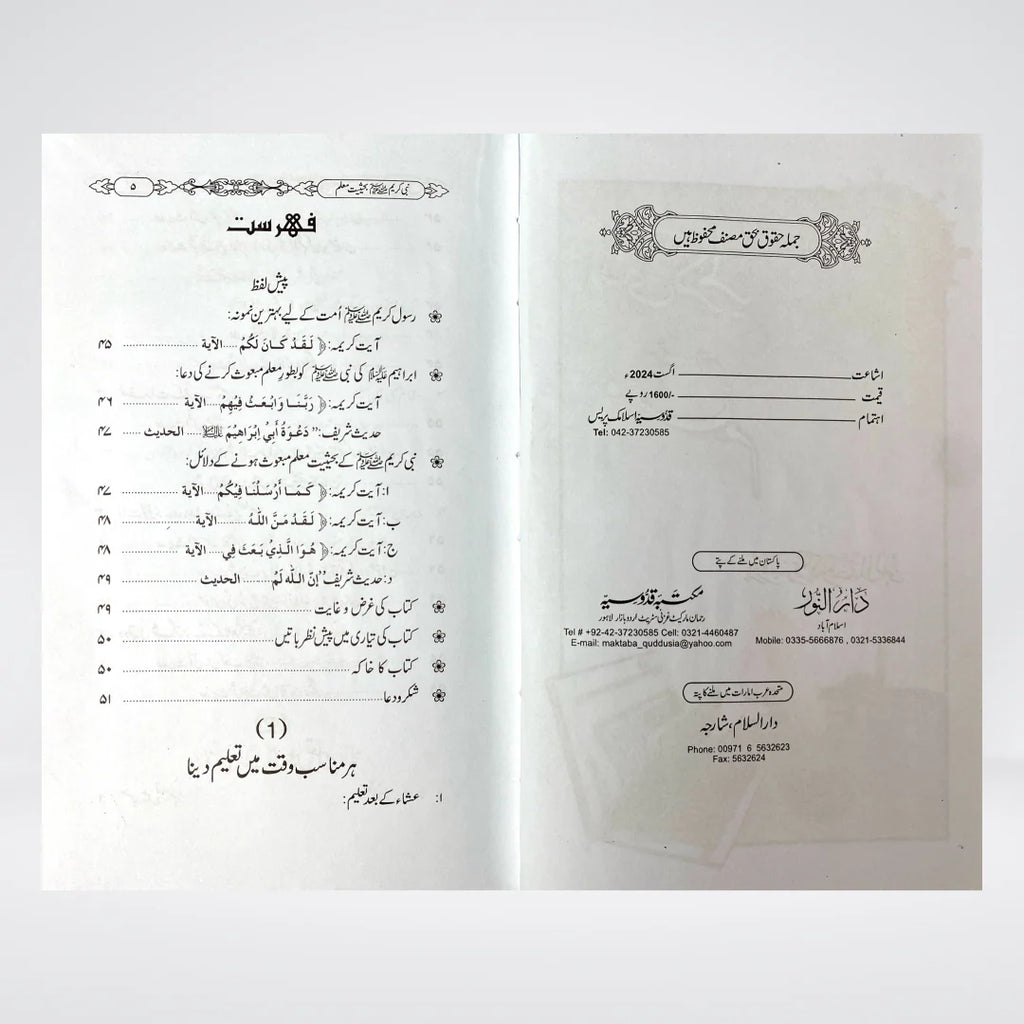 جملہ حقوق بحق مصنف محفوظ ہیں
اشاعت ــــــــــ اگست 2024ء
قیمت ــــــــــ 1600/- روپے
اہتمام ــــــــــ قدوسیہ اسلامک پریس
Tel: 042-37230585
پاکستان میں ملنے کے پتے
دَارُ النُّور
اسلام آباد
Mobile: 0335-5666876 , 0321-5336844
مکتبہ قدوسیہ
رحمان مارکیٹ غزنی سٹریٹ اردو بازار لاہور
Tel # +92-42-37230585 Cell: 0321-4460487
E-mail: maktaba_quddusia@yahoo.com
متحدہ عرب امارات میں ملنے کا پتہ
دارالسلام، شارجہ
Phone: 00971 6 5632623
Fax: 5632624
نبی کریم ﷺ بحیثیت معلم ۵
فہرست
پیش لفظ
رسول کریم ﷺ اُمت کے لیے بہترین نمونہ:
آیت کریمہ: ﴿ لَقَدْ كَانَ لَكُمْ .... الآية .......... ۴۵
ابراہیم علیہ السلام کی نبی ﷺ کو بطورِ معلم مبعوث کرنے کی دعا:
آیت کریمہ: ﴿ رَبَّنَا وَابْعَثْ فِيهِمْ .... الآية .......... ۴۶
حدیث شریف: ”دَعْوَةُ أَبِيْ إِبْرَاهِيْمَ علیہ السلام .... الحديث .......... ۴۷
نبی کریم ﷺ کے بحیثیت معلم مبعوث ہونے کے دلائل:
ا: آیت کریمہ: ﴿ كَمَا أَرْسَلْنَا فِيْكُمْ .... الآية .......... ۴۷
ب: آیت کریمہ: ﴿ لَقَدْ مَنَّ اللّٰهُ .......... الآية .......... ۴۸
ج: آیت کریمہ: ﴿ هُوَ الَّذِيْ بَعَثَ فِي .... الآية .......... ۴۸
د: حدیث شریف ”إِنَّ اللّٰه لَمْ .......... الحديث .......... ۴۹
کتاب کی غرض و غایت .......... ۴۹
کتاب کی تیاری میں پیش نظر باتیں .......... ۵۰
کتاب کا خاکہ .......... ۵۰
شکر و دعا .......... ۵۱
(1)
ہر مناسب وقت میں تعلیم دینا
ا: عشاء کے بعد تعلیم: